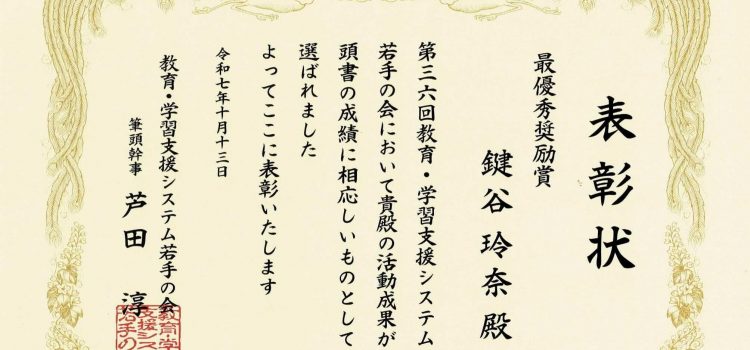 表彰状
最優秀奨励賞
鍵谷玲奈殿
第三六回教育・学習支援システム
若手の会において貴殿の活動成果が
頭書の成績に相応しいものとして
選ばれました
よってここに表彰いたします
令和七年十月十三日
教育・学習支援システム若手の会
筆頭幹事 芦田 淳
教育学
支援シス
若手の